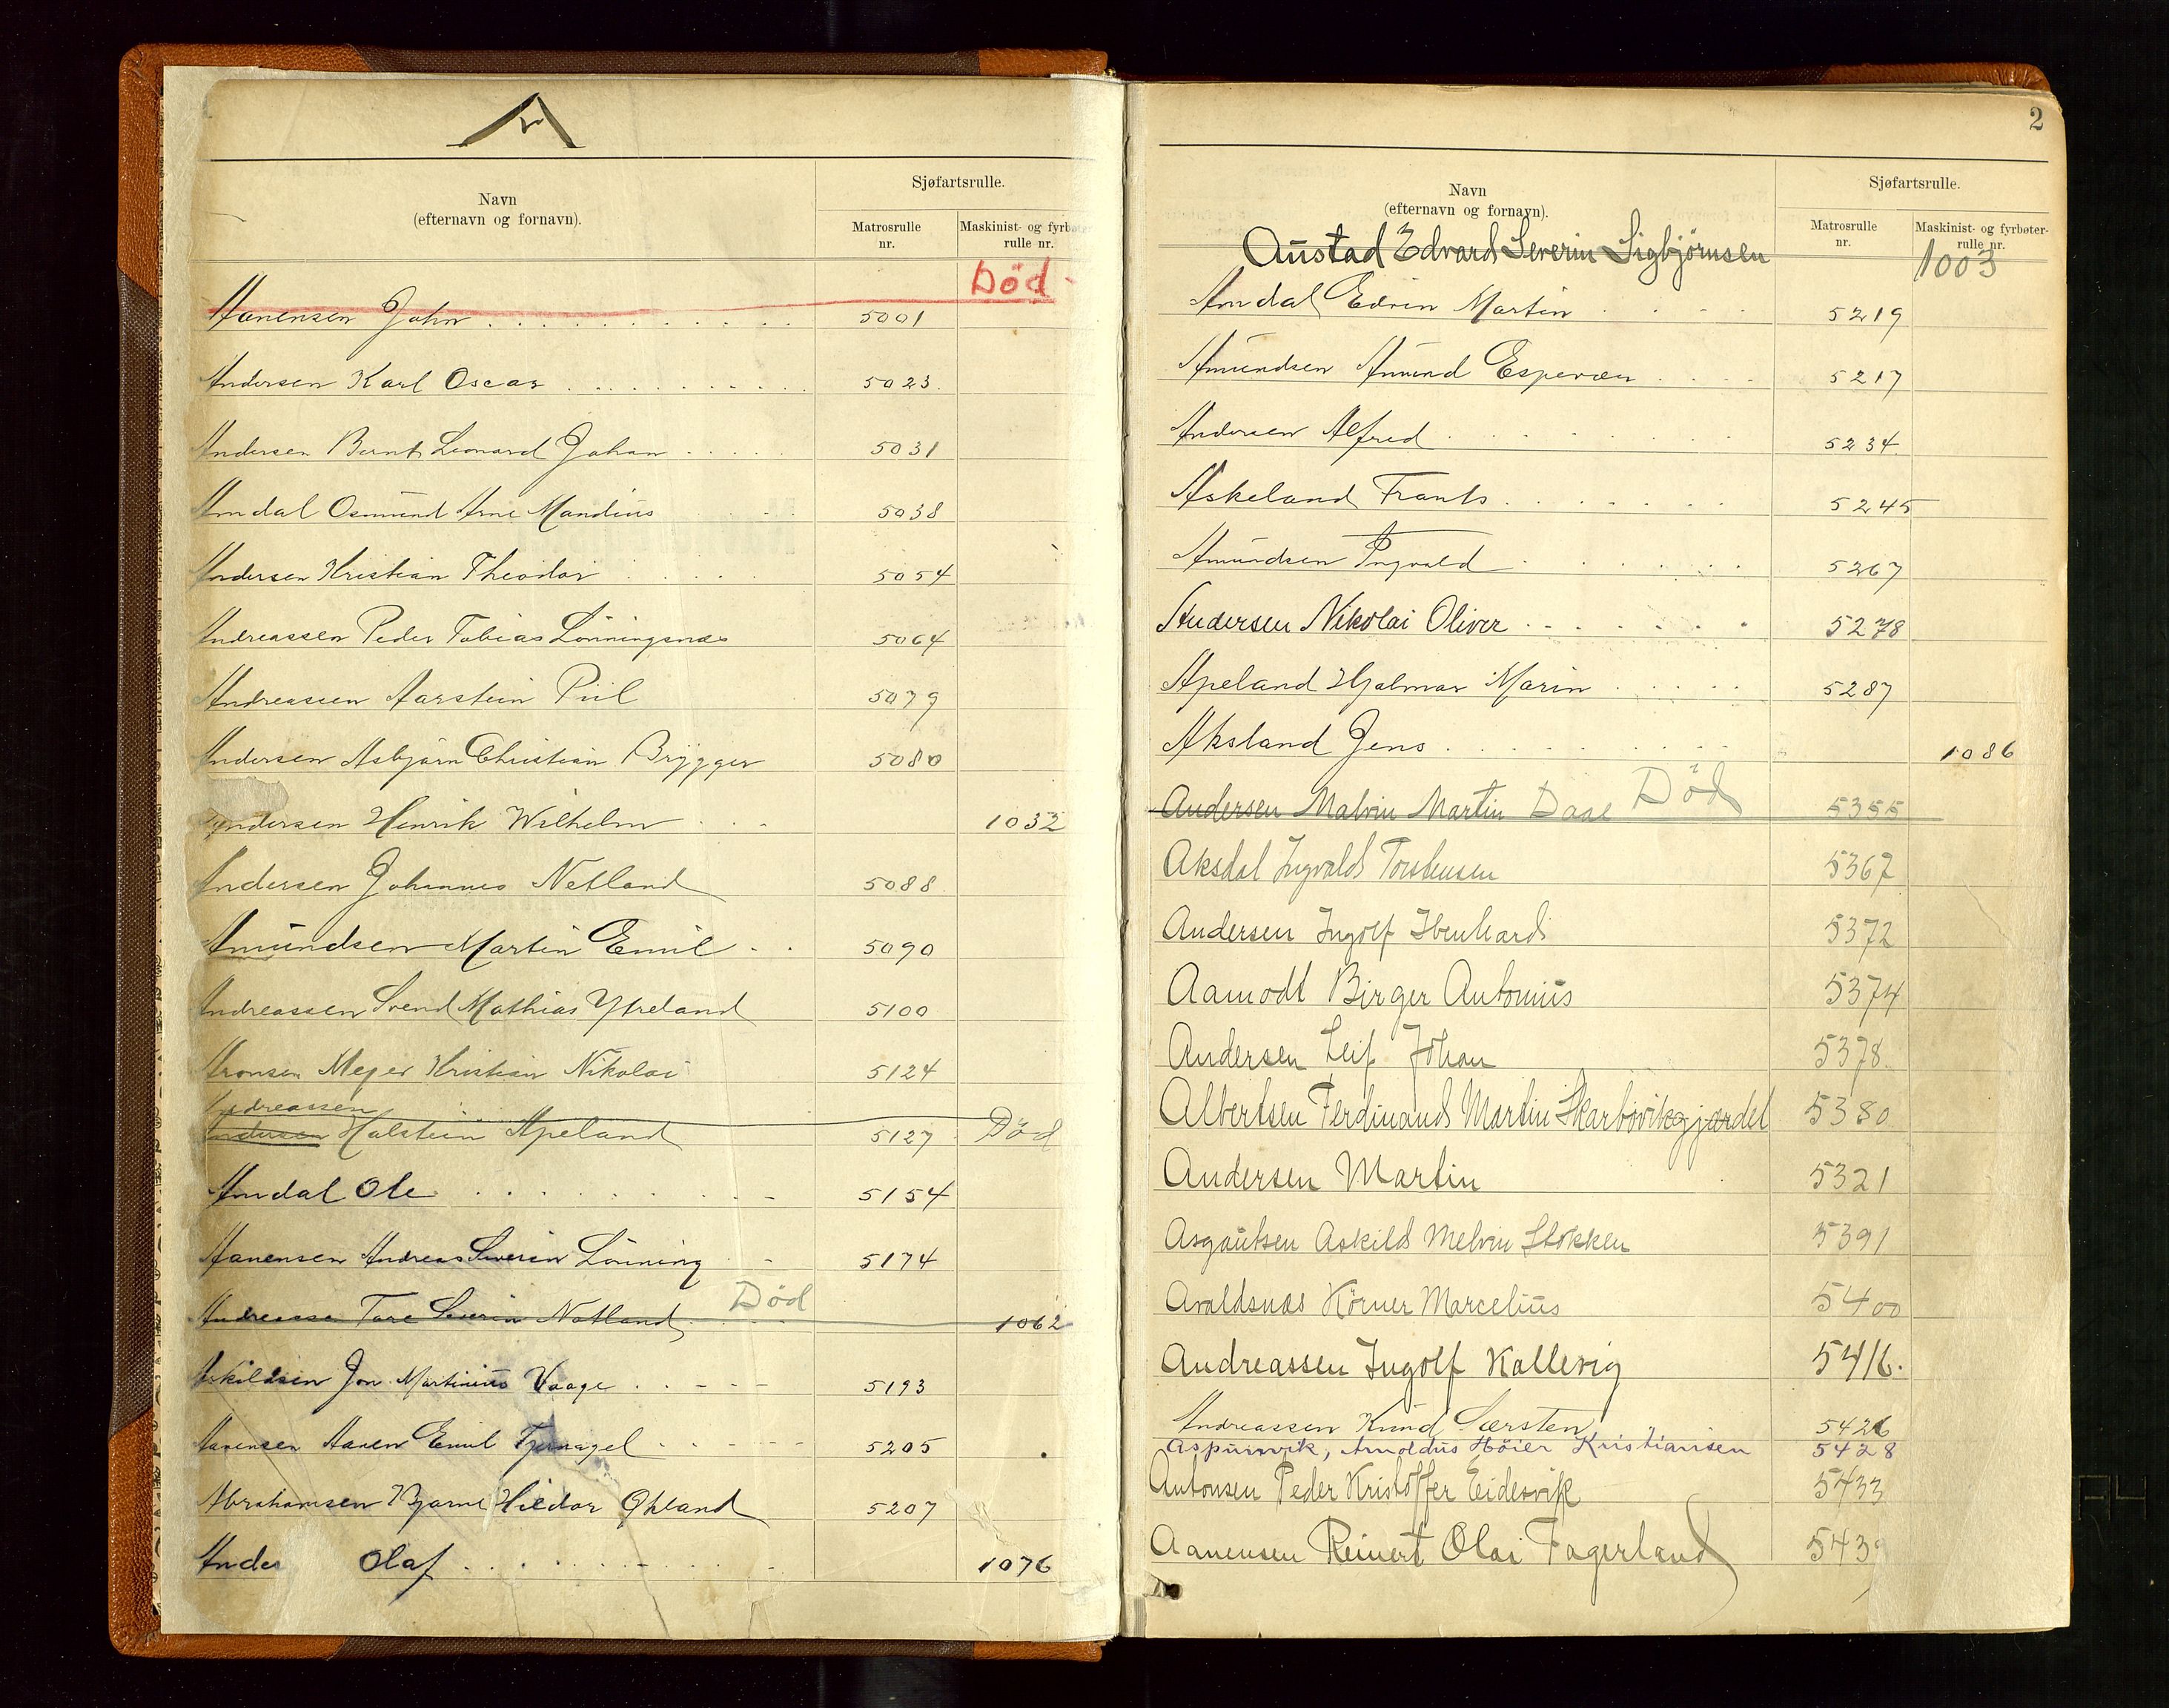 A
Navn
(efternavn og fornavn).
Sjøfartsrulle.
Matrosrulle
nr.
Maskinist- og fyrbøter-
rulle nr.
Død
Aanensen John 5001
Andersen Karl Oscar 5023.
Andersen Bernt Leonard Johan 5031
Amdal Osmund Arne Mandius 5038
Andersen Kristian Theodor 5054
Andreassen Peder Tobias Lönningsnæs 5064
Andreassen Aarstein Piil 5079
Andersen Asbjørn Christian Brygger 5080
Andersen Henrik Wilhelm 1032
Andersen Johannes Netland 5088
Amundsen Martin Emil 5090
Andreassen Svend Mathias Ytreland 5100
Aronsen Meyer Kristian Nikolai 5124
Andreassen
Andersen Halstein Apeland 5127 Död
Amdal Ole 5154
Aanensen Andreas Severin Lönning 5174
Andreassen Tore Severin Natland Död 1062
Askildsen Jon Martinius Vaage 5193
Aanensen Aanen Emil Tjernagel 5205
Abrahamsen Bjarne Hildor Økland 5207
Ander Olaf 1076
2
Navn
(efternavn og fornavn).
Sjøfartsrulle.
Matrosrulle
nr.
Maskinist- og fyrbøter-
rulle nr.
Austad Edvard Severin Sigbjørnsen 1003
Amdal Edvin Martin 5219
Amundsen Amund Espevær 5217
Andersen Alfred 5234
Askeland Frants 5245
Amundsen Ingvald 5267
Andersen Nikolai Oliver 5278
Apeland Hjalmar Marin 5287
Aksland Jens 1086
Andersen Malvin Martin Daae Död 5355
Aksdal Ingvald Torstensen 5367
Andersen Ingolf Ibenhard 5372
Aamodt Birger Antonius 5374
Andersen Leif Johan 5378
Albertsen Ferdinand Martin Skarbövikgjærdet 5380
Andersen Martin 5321
Asgautsen Askild Melvin Stokken 5391
Avaldsnæs Körner Marcelius 5400
Andreassen Ingolf Kallevig 5416.
Andreassen Knud Sersten 5426
Aspunvik, Arnoldus Höier Kristiansen 5428
Antonsen Peder Kristoffer Eidesvik 5433
Aanensen Reinert Olai Fagerland 5439